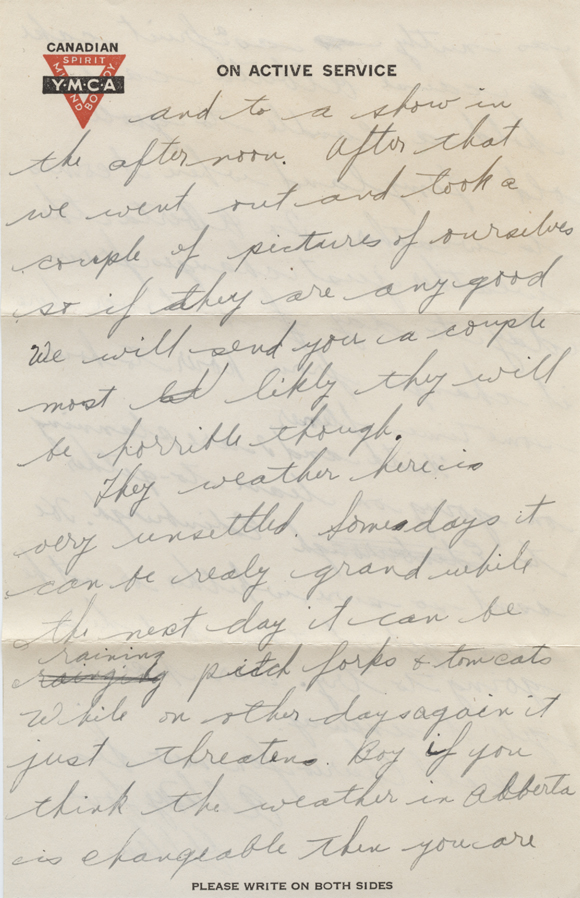 CANADIAN
SPIRIT
MIND BODY
Y·M·C·A
ON ACTIVE SERVICE
and to a show in
the afternoon. After that
we went out and took a
couple of pictures of ourselves
so if they are any good
We will send you a couple
most likly they will
be horrible though.
They weather here is
very unsettled. Somedays it
can be realy grand while
the next day it can be
raining
rainging pitch forks & tomcats
While on other days again it
just threatens. Boy if you
think the weather in Alberta
is changeable then you are
PLEASE WRITE ON BOTH SIDES